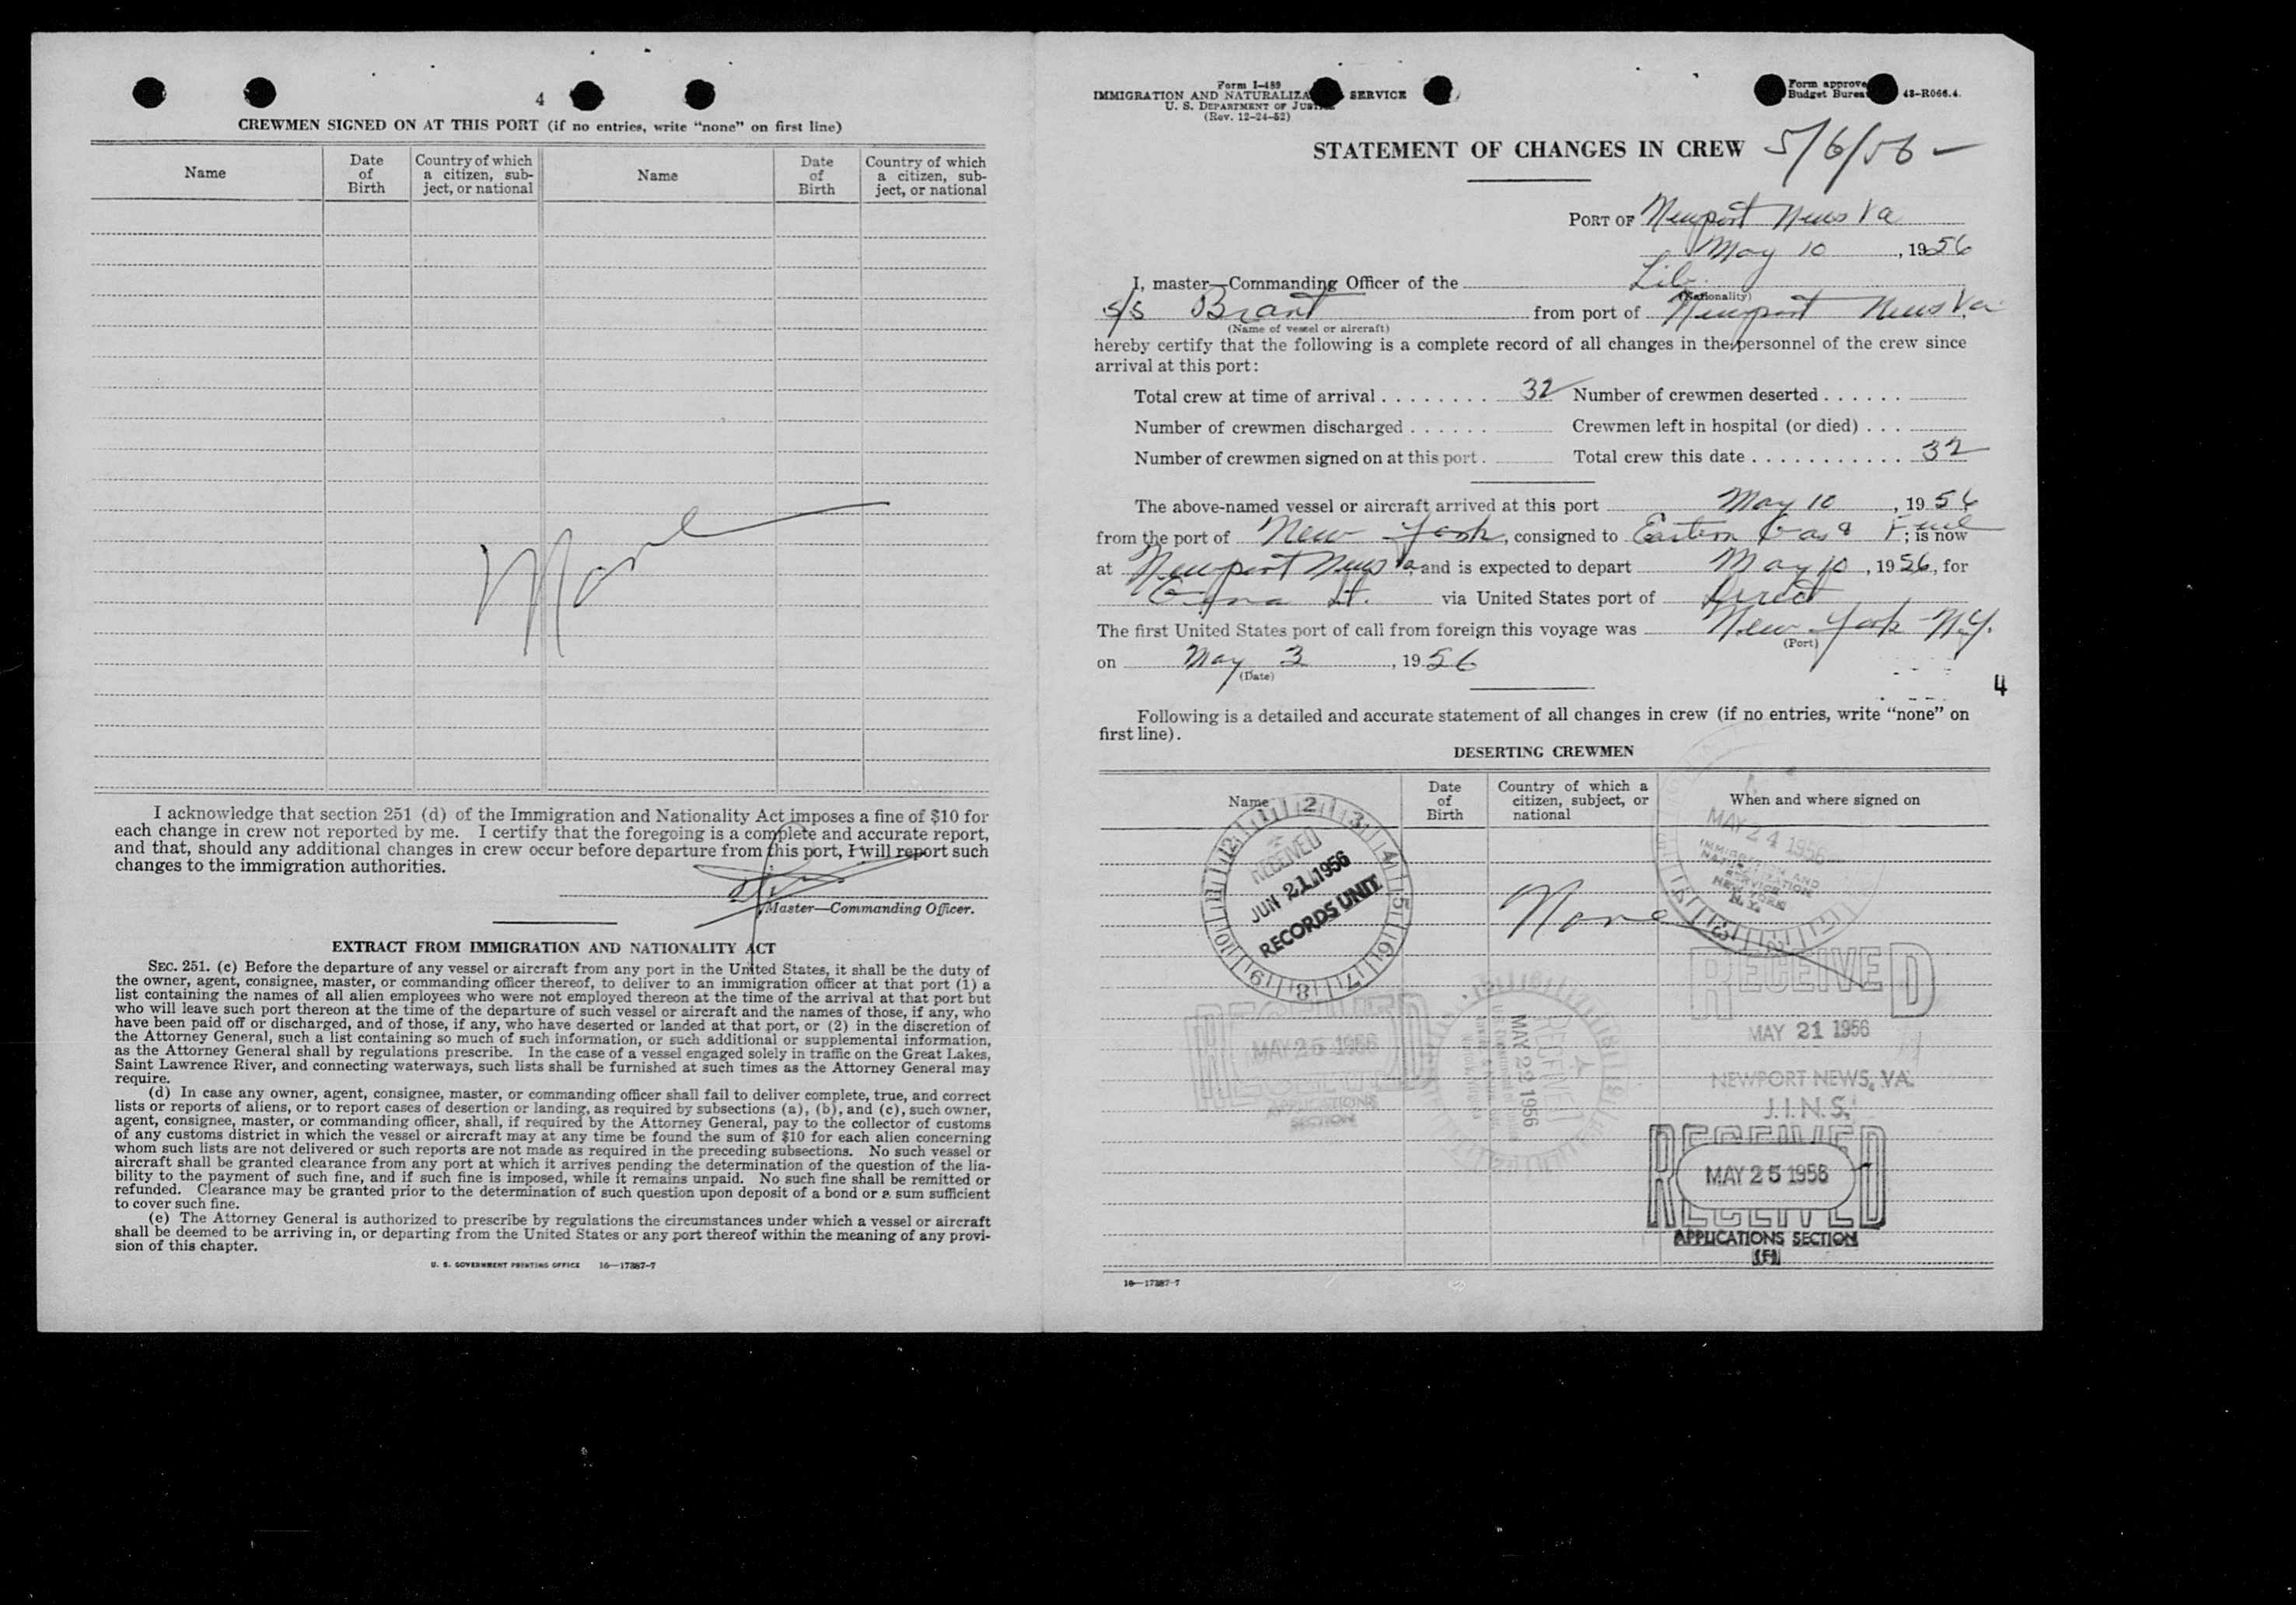 4
CREWMEN SIGNED ON AT THIS PORT (if no entries, write "none" on first line)
Name
Date of Birth
Country of which a citizen, subject, or national
Name
Date of Birth
Country of which a citizen, subject, or national
None
I acknowledge that section 251 (d) of the Immigration and Nationality Act imposes a fine of $10 for
each change in crew not reported by me. I certify that the foregoing is a complete and accurate report,
and that, should any additional changes in crew occur before departure from this port, I will report such
changes to the immigration authorities.
Master—Commanding Officer.
EXTRACT FROM IMMIGRATION AND NATIONALITY ACT
SEC. 251. (c) Before the departure of any vessel or aircraft from any port in the United States, it shall be the duty of
the owner, agent, consignee, master, or commanding officer thereof, to deliver to an immigration officer at that port (1) a
list containing the names of all alien employees who were not employed thereon at the time of the arrival at that port but
who will leave such port thereon at the time of the departure of such vessel or aircraft and the names of those, if any, who
have been paid off or discharged, and of those, if any, who have deserted or landed at that port, or (2) in the discretion of
the Attorney General, such a list containing so much of such information, or such additional or supplemental information,
as the Attorney General shall by regulations prescribe. In the case of a vessel engaged solely in traffic on the Great Lakes,
Saint Lawrence River, and connecting waterways, such lists shall be furnished at such times as the Attorney General may
require.
(d) In case any owner, agent, consignee, master, or commanding officer shall fail to deliver complete, true, and correct
lists or reports of aliens, or to report cases of desertion or landing, as required by subsections (a), (b), and (c), such owner,
agent, consignee, master, or commanding officer, shall, if required by the Attorney General, pay to the collector of customs
of any customs district in which the vessel or aircraft may at any time be found the sum of $10 for each alien concerning
whom such lists are not delivered or such reports are not made as required in the preceding subsections. No such vessel or
aircraft shall be granted clearance from any port at which it arrives pending the determination of the question of the lia-
bility to the payment of such fine, and if such fine is imposed, while it remains unpaid. No such fine shall be remitted or
refunded. Clearance may be granted prior to the determination of such question upon deposit of a bond or a sum sufficient
to cover such fine.
(e) The Attorney General is authorized to prescribe by regulations the circumstances under which a vessel or aircraft
shall be deemed to be arriving in, or departing from the United States or any port thereof within the meaning of any provi-
sion of this chapter.
U. S. GOVERNMENT PRINTING OFFICE 16—17387-7
Form I-489
IMMIGRATION AND NATURALIZA SERVICE
U. S. DEPARTMENT OF JUSTICE
(Rev. 12-24-52)
Form approve
Budget Burea 43-R066.4.
STATEMENT OF CHANGES IN CREW 5/6/56 —
PORT OF Newport News Va
May 10, 1956
I, master—Commanding Officer of the Lib.
(Nationality)
S/S Brant from port of Newport News Va
(Name of vessel or aircraft)
hereby certify that the following is a complete record of all changes in the personnel of the crew since
arrival at this port:
Total crew at time of arrival . . . . . . . . 32 Number of crewmen deserted . . . . . .
Number of crewmen discharged . . . . . . Crewmen left in hospital (or died) . . .
Number of crewmen signed on at this port . Total crew this date . . . . . . . . . . . . 32
The above-named vessel or aircraft arrived at this port May 10, 1956
from the port of New York, consigned to Eastern Gas & Fuel; is now
at Newport News Va, and is expected to depart May 10, 1956, for
via United States port of Direct
The first United States port of call from foreign this voyage was New York N.Y.
(Port)
on May 3, 1956
(Date)
4
Following is a detailed and accurate statement of all changes in crew (if no entries, write "none" on
first line).
DESERTING CREWMEN
Name
Date of Birth
Country of which a citizen, subject, or national
When and where signed on
None
RECEIVED
JUN 21 1956
RECORDS UNIT
MAY 24 1956
IMMIGRATION AND
NATURALIZATION
SERVICE
NEW YORK
N. Y.
RECEIVED
MAY 21 1956
NEWPORT NEWS, VA.
J.I.N.S.
RECEIVED
MAY 25 1956
APPLICATIONS
SECTION
RECEIVED
MAY 22 1956
RECEIVED
MAY 25 1956
APPLICATIONS SECTION
16—17387-7